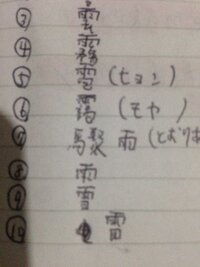 ③ 雲
④ 霧
⑤ 雹 (ヒョン)
⑥ 靄 (モヤ)
⑦ 驟 雨 (とおり
⑧ 雨
⑨ 雪
⑩ 雷